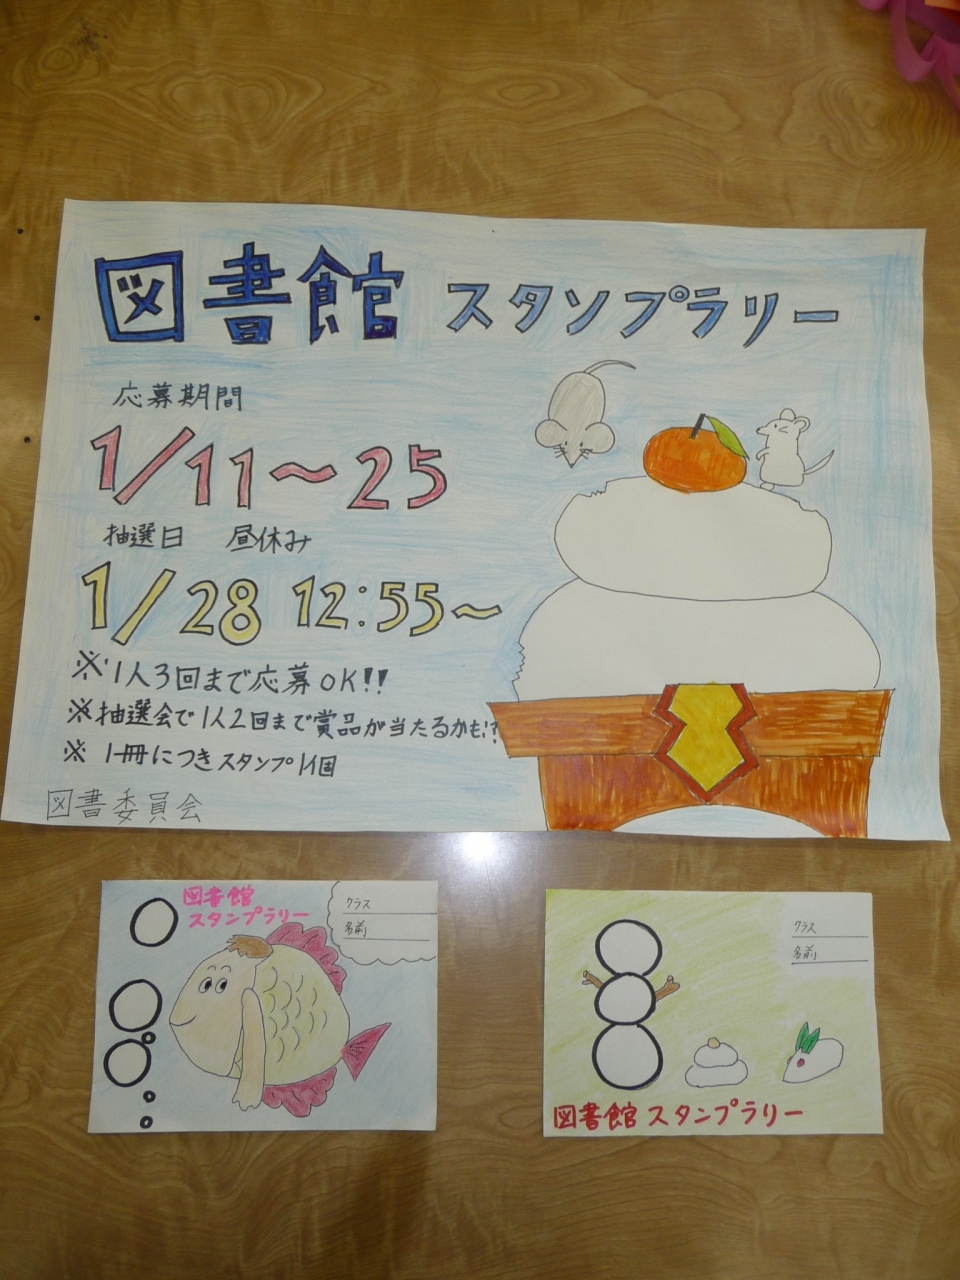 図書館 スタンプラリー
応募期間
1/11～25
抽選日 昼休み
1/28 12:55～
※1人3回まで応募OK!!
※抽選会で1人2回まで賞品が当たるかも!?
※ 1冊につきスタンプ1個
図書委員会
図書館
スタンプラリー
クラス
名前
クラス
名前
図書館 スタンプラリー